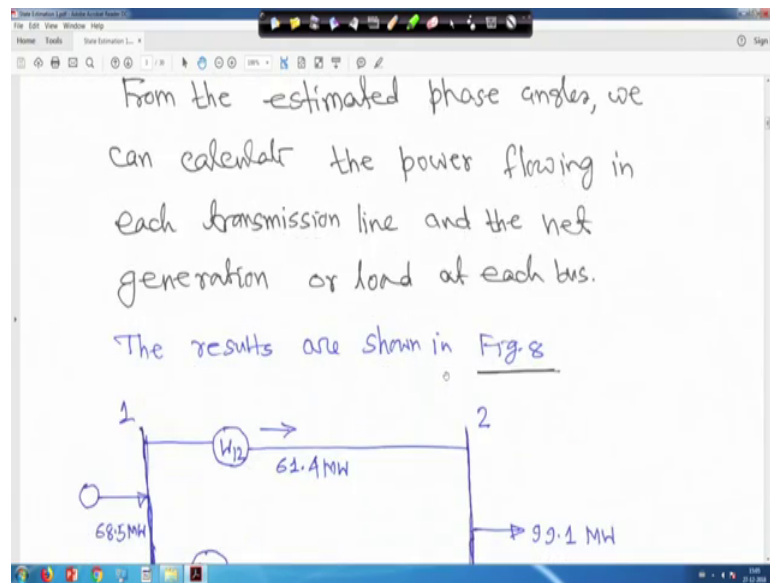 State Estimation 1.pdf - Adobe Acrobat Reader DC
File Edit View Window Help
Home Tools State Estimation 1...
Sign
From the estimated phase angles, we
can calculate the power flowing in
each transmission line and the net
generation or load at each bus.
The results are shown in Fig. 8
1 2
W12
61.4 MW
68.5 MW
99.1 MW